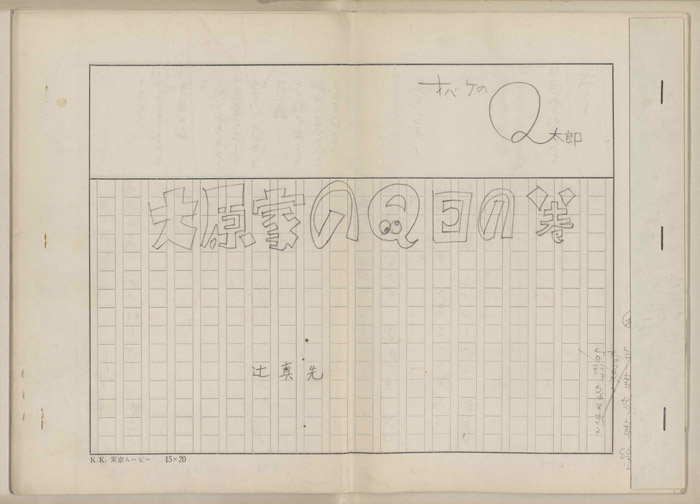 オバケの
Q太郎
大原家のQ日の巻
辻真先
K.K. 東京ムービー 15×20